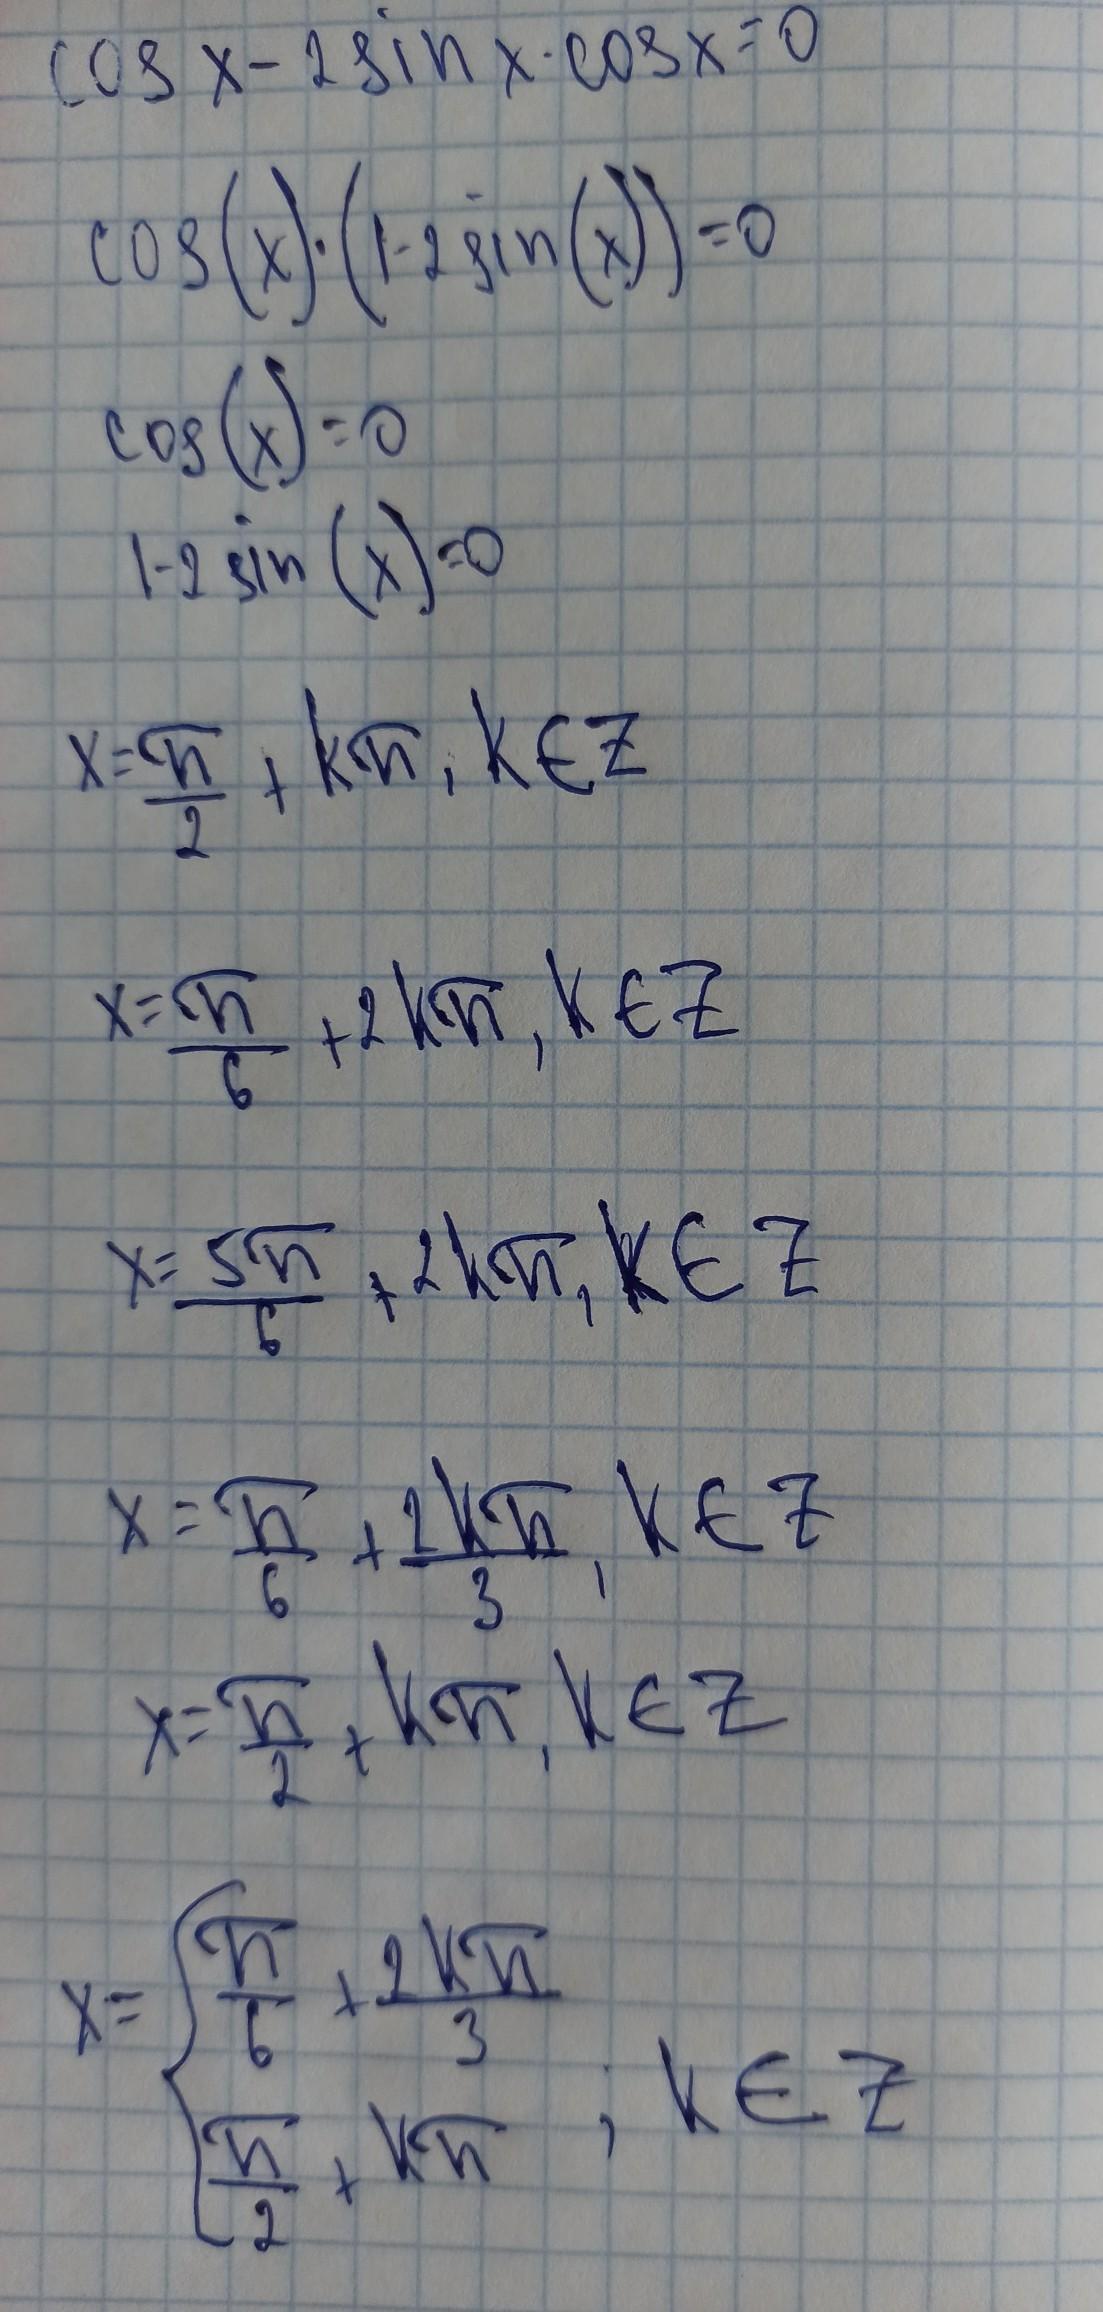 cos x - 2 sin x · cos x = 0
cos(x) · (1-2 sin(x)) = 0
cos(x) = 0
1-2 sin(x) = 0
x = π/2 + kπ, k ∈ Z
x = π/6 + 2kπ, k ∈ Z
x = 5π/6 + 2kπ, k ∈ Z
x = π/6 + 2kπ/3, k ∈ Z
x = π/2 + kπ, k ∈ Z
x = { π/6 + 2kπ/3
π/2 + kπ ; k ∈ Z